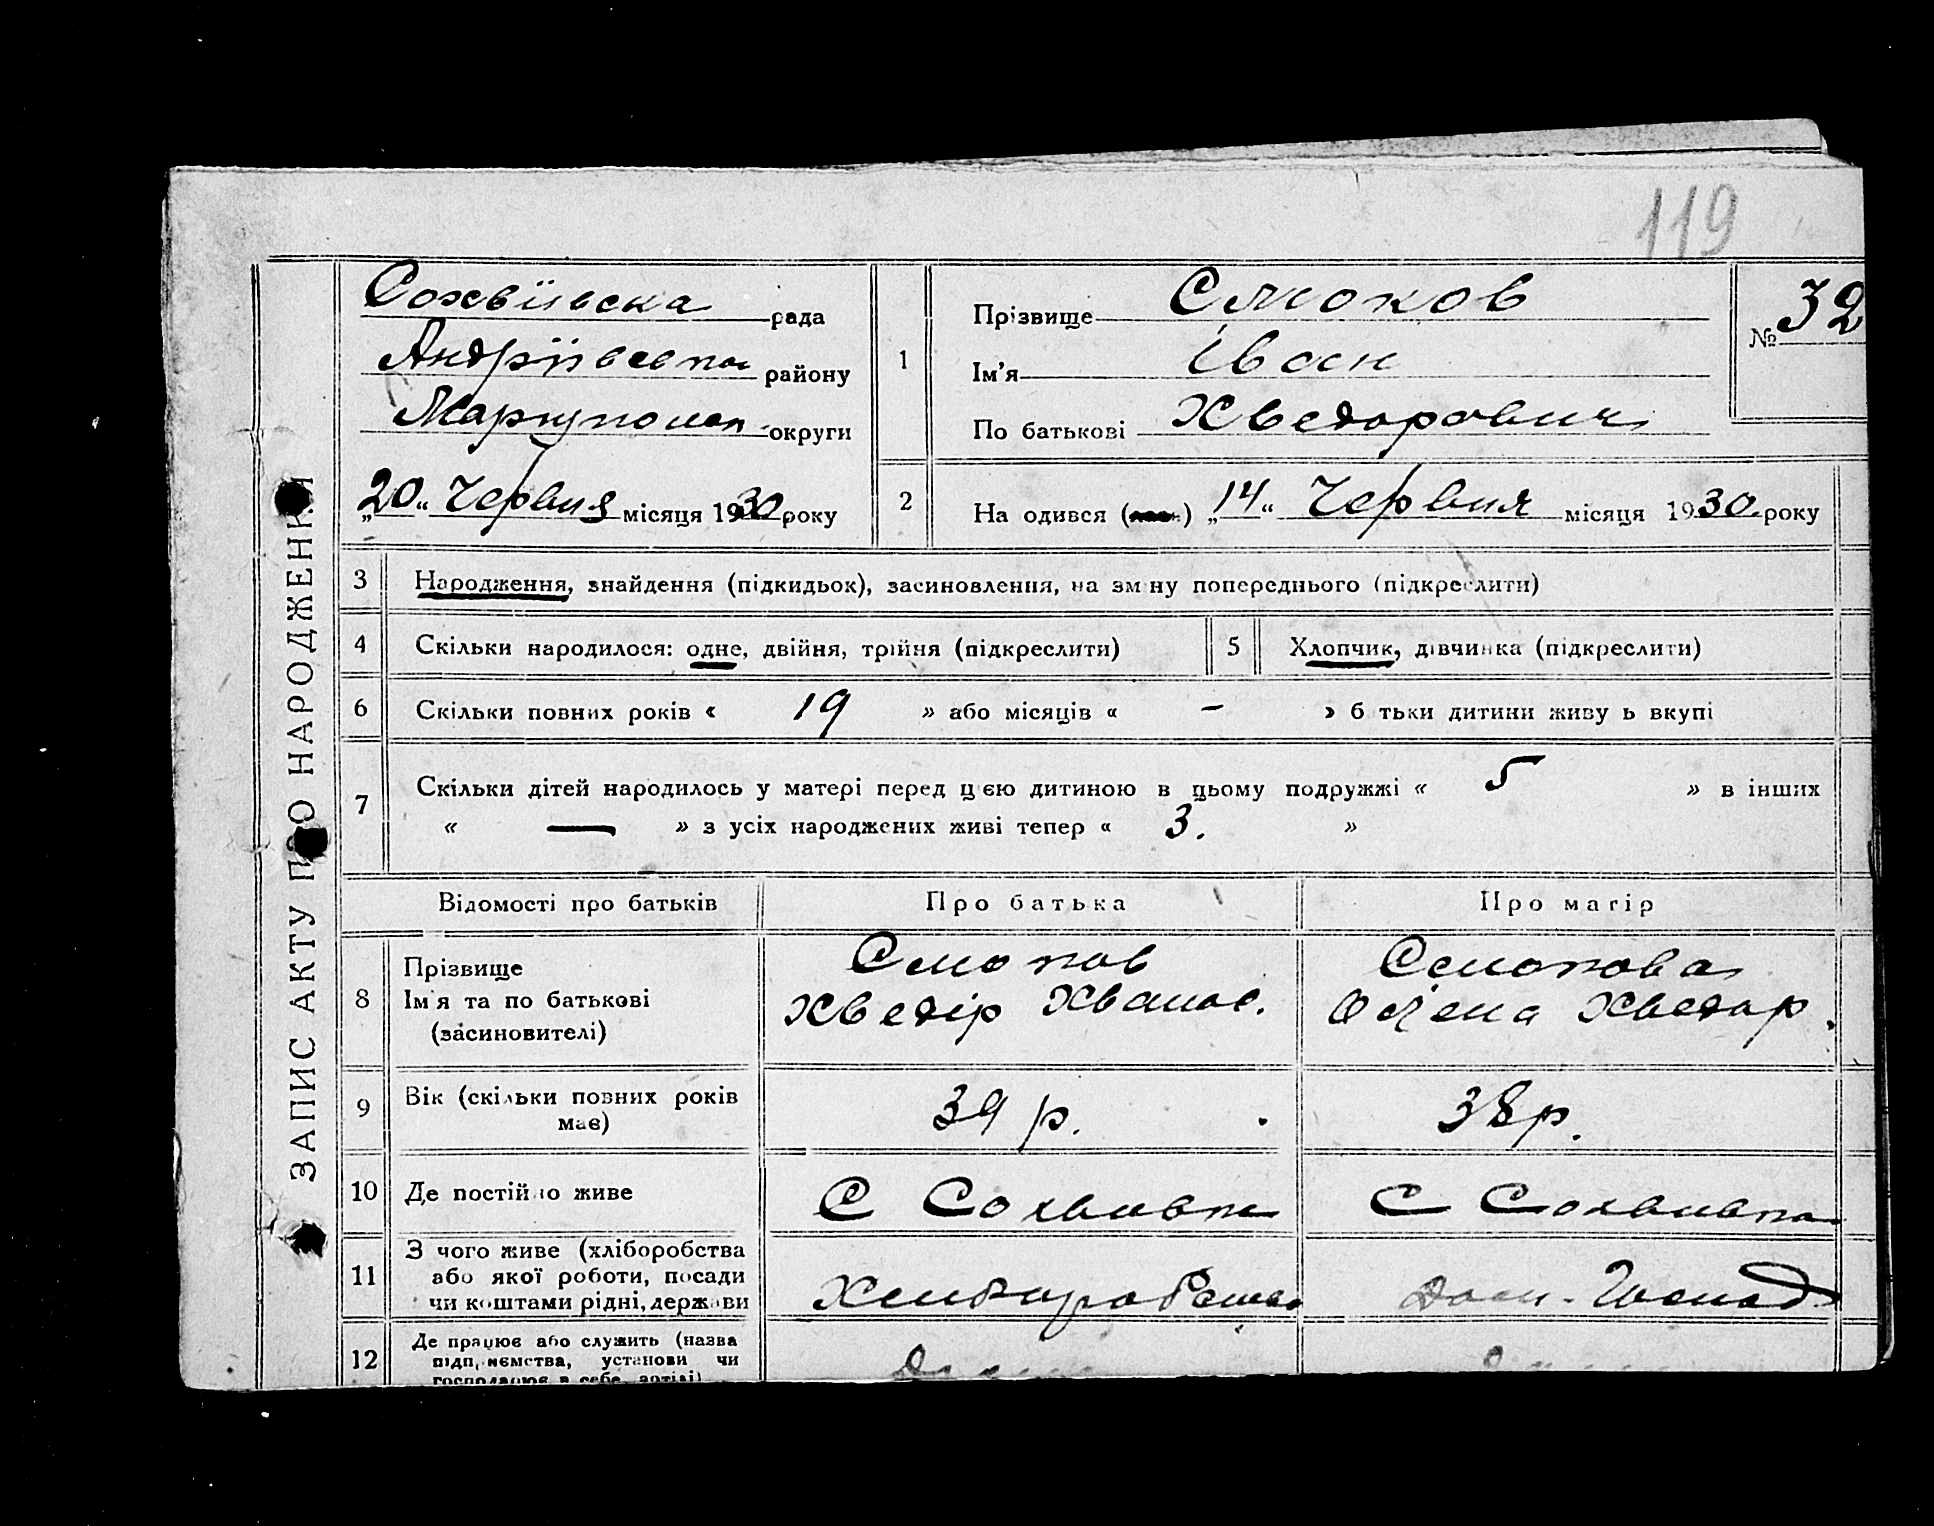 119
ЗАПИС АКТУ ПРО НАРОДЖЕННЯ
Сохвіівска рада
Андріївськ району
Маріупол. округи
„20“ Червня місяця 1930 року
1
Прізвище Смоков
Ім'я Іван
По батькові Хведорович
№ 32
2
На одився ( ) „14“ Червня місяця 1930 року
3 Народження, знайдення (підкидьок), засиновлення, на зм ну попереднього (підкреслити)
4 Скільки народилося: одне, двійня, трійня (підкреслити)
5 Хлопчик, дівчинка (підкреслити)
6 Скільки повних років « 19 » або місяців « - » б тьки дитини живу ь вкупі
7 Скільки дітей народилось у матері перед цією дитиною в цьому подружжі « 5 » в інших
« — » з усіх народжених живі тепер « 3. »
Відомості про батьків Про батька Про матір
8 Прізвище
Ім'я та по батькові
(засиновителі)
Смоков
Хведір
Смокова
Олена Хведор.
9 Вік (скільки повних років
має)
39 р.
38 р.
10 Де постійно живе
С Сохвиівка
С Сохвиівка
11 З чого живе (хліборобства
або якої роботи, посади
чи коштами рідні, держави
Дом. Господ.
12 Де працює або служить (назва
підприємства, установи чи
господарює в себе, артілі)